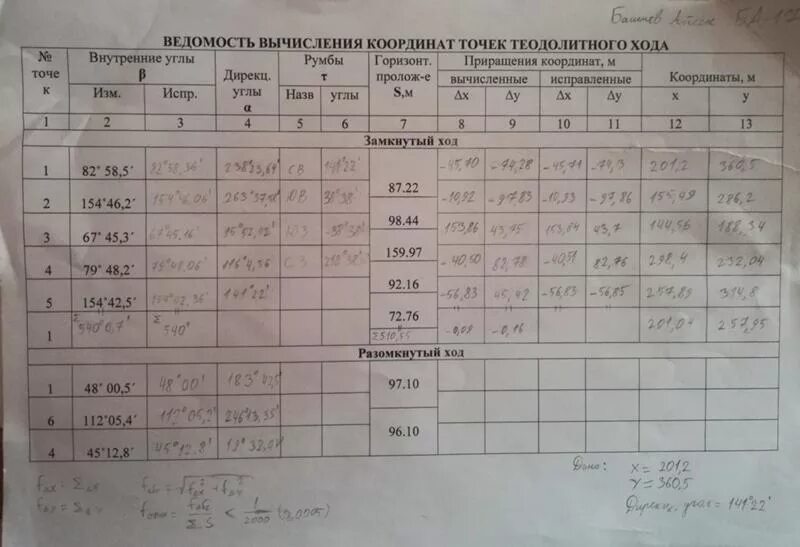 Айсек БД-12
ВЕДОМОСТЬ ВЫЧИСЛЕНИЯ КООРДИНАТ ТОЧЕК ТЕОДОЛИТНОГО ХОДА
№ точе к | Внутренние углы β | Дирекц. углы α | Румбы τ | Горизонт. пролож-е S,м | Приращения координат, м | Координаты, м
Изм. | Испр. | Назв | углы | вычисленные | исправленные | x | y
Δx | Δy | Δx | Δy
1 2 3 4 5 6 7 8 9 10 11 12 13
Замкнутый ход
1 82°58,5' 82°58,36' 238°23,64' СВ 141°22' -45,70 -74,28 -45,71 -74,3 201,2 360,5
87.22
2 154°46,2' 154°46,06' 263°37,58' ЮВ 38°38' -10,92 -97,83 -10,93 -97,86 155,49 286,2
98.44
3 67°45,3' 67°45,16' 15°52,42' ЮЗ -38°38' 153,86 43,75 153,84 43,7 144,56 188,34
159.97
4 79°48,2' 79°48,06' 116°4,36' СЗ 218°38' -40,50 82,78 -40,51 82,76 298,4 232,04
92.16
5 154°42,5' 154°42,36' 141°22' -56,83 45,42 -56,83 -56,85 257,89 314,8
72.76
1 Σ 540°0,7' Σ 540° Σ510,55 -0,09 -0,16 201,04 257,95
Разомкнутый ход
1 48°00,5' 48°00' 183°42,5'
97.10
6 112°05,4' 112°05,2' 246°13,35'
96.10
4 45°12,8' 45°12,8'
Дано: x = 201,2
y = 360,5
Дирекц. угол = 141°22'